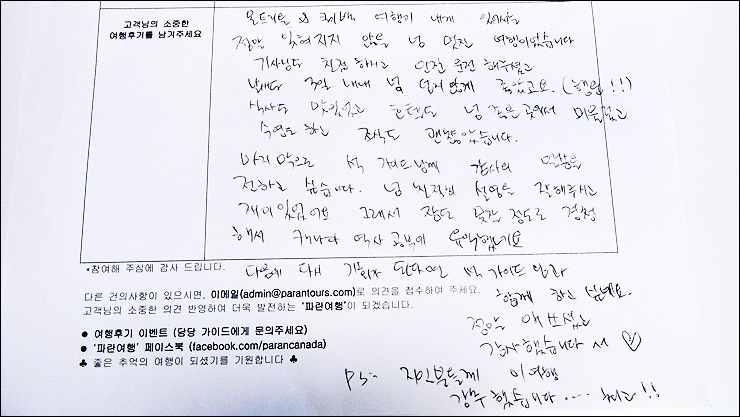 고객님의 소중한
여행후기를 남겨주세요
몬트리올 & 퀘벡 여행이 내게 있어서는
정말 잊혀지지 않을 넘 멋진 여행이었습니다
기사님도 친절하시고 안전 운전 해주셨고
날씨도 3일 내내 넘 덥지않게 좋았고요. (행운!!)
식사도 맛있었고 호텔도 넘 좋은 곳에서 머물렀고
수영도 하고 조식도 괜찮았습니다.
마지막으로 석 가이드님께 감사의 말씀을
전하고 싶습니다. 넘 친절히 설명을 잘해주시고
재미있었어요 그래서 잠도 못잘 정도로 경청
해서 캐나다 역사 공부에 유익했네요
•참여해 주심에 감사 드립니다.
다음에 다시 기회가 된다면 석 가이드 님과
함께 하고 싶네요.
정말 애쓰셨고
감사했습니다 서 ♡
다른 건의사항이 있으시면, 이메일(admin@parantours.com)로 의견을 접수하여 주세요.
고객님의 소중한 의견 반영하여 더욱 발전하는 '파란여행'이 되겠습니다.
● 여행후기 이벤트 (담당 가이드에게 문의주세요)
● '파란여행' 페이스북 (facebook.com/parancanada)
♣ 좋은 추억의 여행이 되셨기를 기원합니다 ♣
PS.. 지인분들께 이 여행
강추 했습니다 .... 최고!!